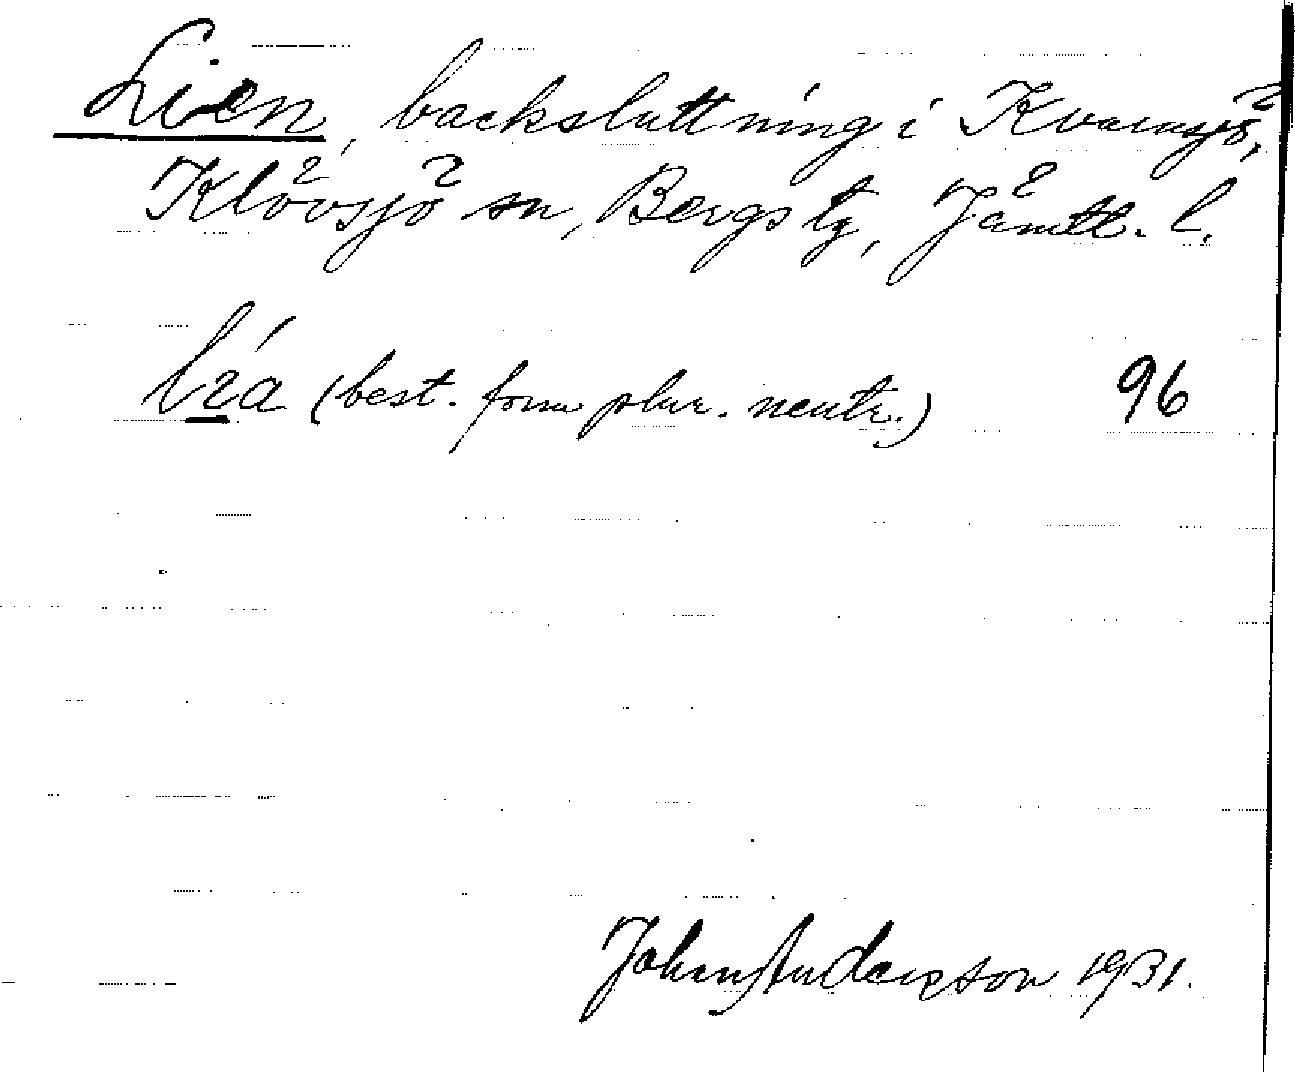 Lien, backsluttning i Kvarnsjö,
Klövsjö sn, Bergs tg, Jämtl. l.
(best. form plur. neutr.) 96
John Andersson 1931.